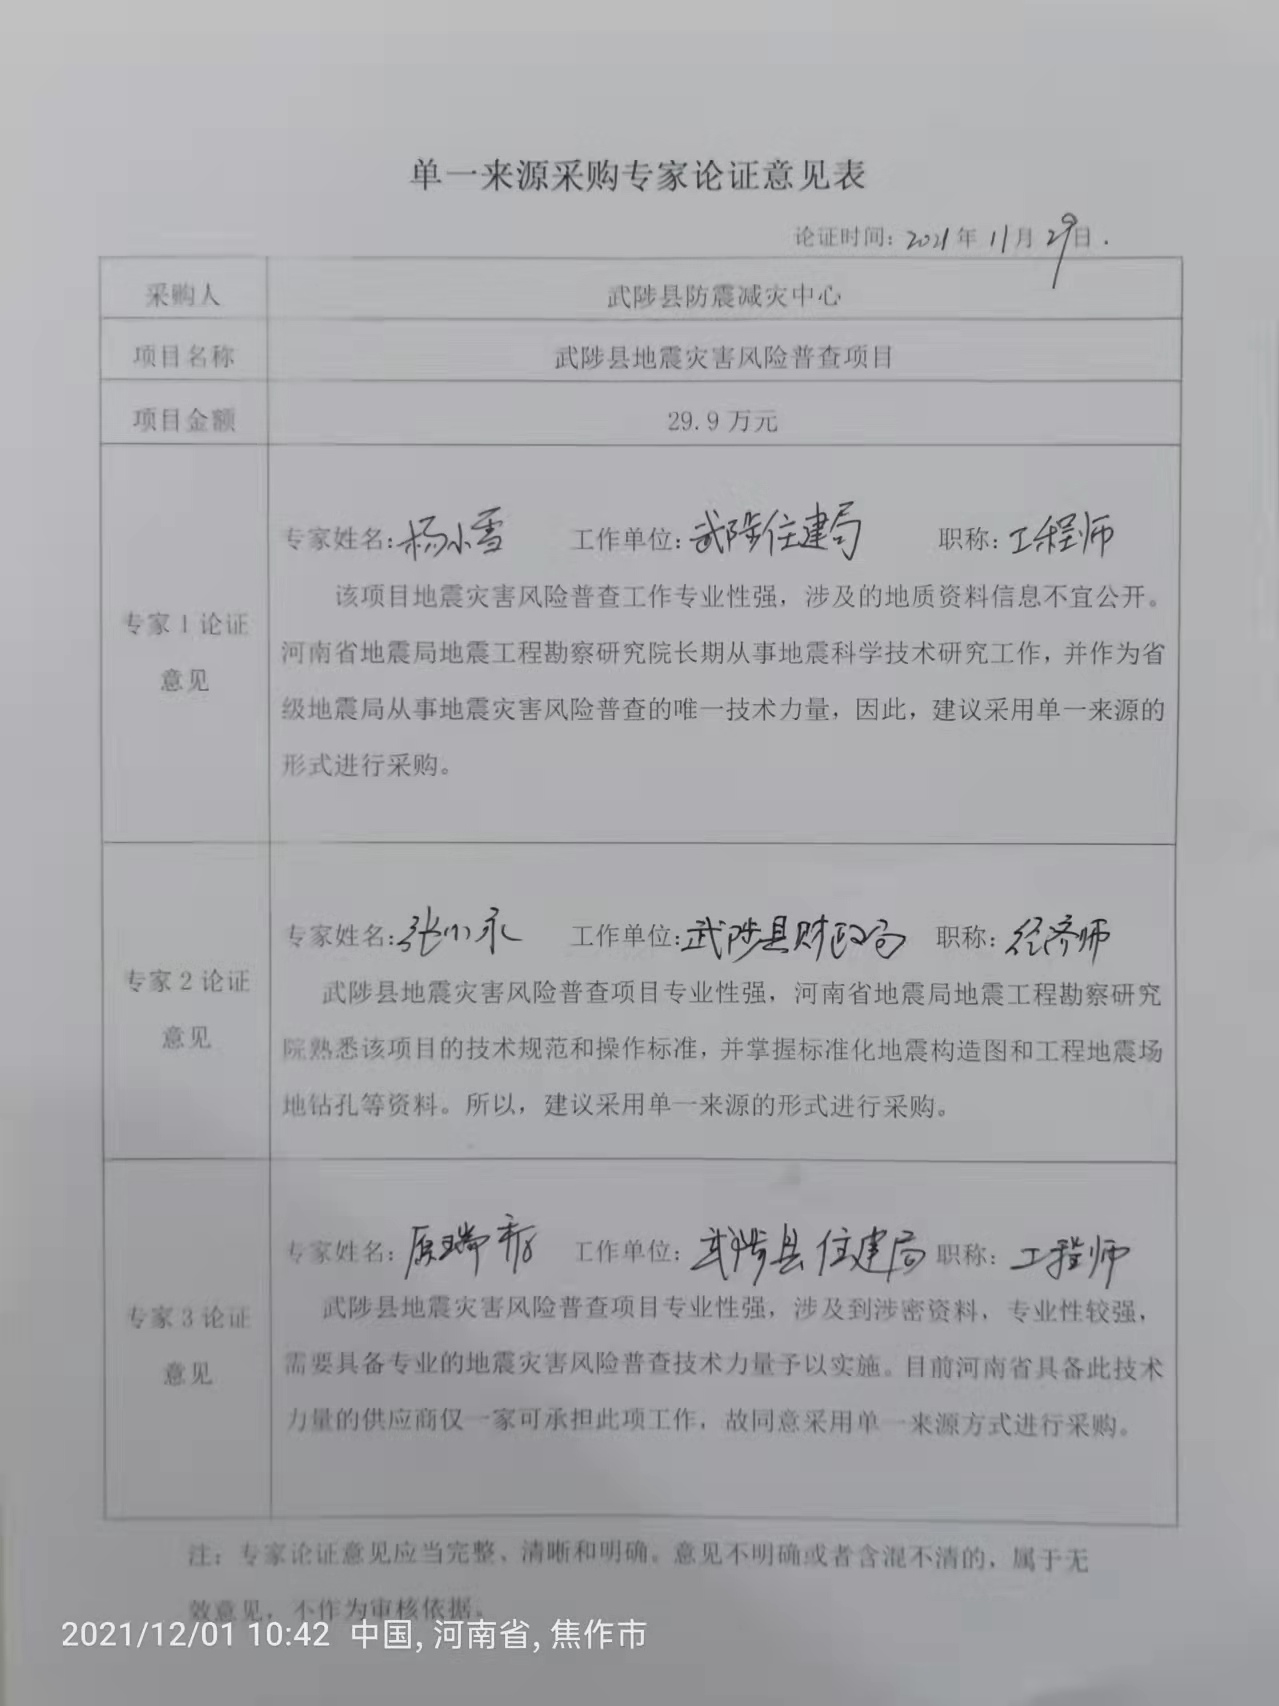 单一来源采购专家论证意见表
论证时间：2021年11月29日.
采购人 武陟县防震减灾中心
项目名称 武陟县地震灾害风险普查项目
项目金额 29.9 万元
专家1论证
意见
专家姓名：杨小雪 工作单位：武陟住建局 职称：工程师
该项目地震灾害风险普查工作专业性强，涉及的地质资料信息不宜公开。
河南省地震局地震工程勘察研究院长期从事地震科学技术研究工作，并作为省
级地震局从事地震灾害风险普查的唯一技术力量，因此，建议采用单一来源的
形式进行采购。
专家2论证
意见
专家姓名：张小永 工作单位：武陟县财政局 职称：经济师
武陟县地震灾害风险普查项目专业性强，河南省地震局地震工程勘察研究
院熟悉该项目的技术规范和操作标准，并掌握标准化地震构造图和工程地震场
地钻孔等资料。所以，建议采用单一来源的形式进行采购。
专家3论证
意见
专家姓名：原瑞 工作单位：武陟县住建局 职称：工程师
武陟县地震灾害风险普查项目专业性强，涉及到涉密资料，专业性较强，
需要具备专业的地震灾害风险普查技术力量予以实施。目前河南省具备此技术
力量的供应商仅一家可承担此项工作，故同意采用单一来源方式进行采购。
注：专家论证意见应当完整、清晰和明确。意见不明确或者含混不清的，属于无
效意见，不作为审核依据。
2021/12/01 10:42 中国, 河南省, 焦作市